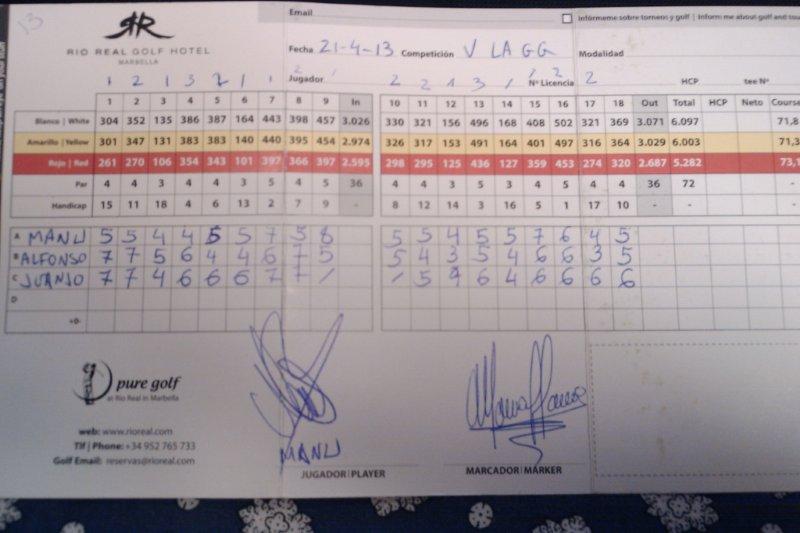 13
RIO REAL GOLF HOTEL
MARBELLA
Email
Infórmeme sobre torneos y golf | Inform me about golf and tou
Fecha 21-4-13 Competición V LAGG Modalidad
Jugador Nº Licencia HCP tee Nº
1 2 1 3 2 1 1 2 1 2 2 1 3 1 1 2 2
1 2 3 4 5 6 7 8 9 In 10 11 12 13 14 15 16 17 18 Out Total HCP Neto Course
Blanco | White 304 352 135 386 387 164 443 398 457 3.026 330 321 156 496 168 408 502 321 369 3.071 6.097 71,8
Amarillo | Yellow 301 347 131 383 383 140 440 395 454 2.974 326 317 153 491 164 401 497 316 364 3.029 6.003 71,3
Rojo | Red 261 270 106 354 343 101 397 366 397 2.595 298 295 125 436 127 359 453 274 320 2.687 5.282 73,1
Par 4 4 3 4 4 3 5 4 5 36 4 4 3 5 3 4 5 4 4 36 72 - -
Handicap 15 11 18 4 6 13 2 7 9 - 8 12 14 3 16 5 1 17 10 - - - -
A MANU 5 5 4 4 5 5 7 5 8 5 5 4 5 5 7 6 4 5
B ALFONSO 7 7 5 6 4 4 6 7 5 5 4 3 5 4 6 6 3 5
C JUANJO 7 7 4 6 6 6 7 7 / / 5 4 6 4 6 6 6 6
D
+0-
pure golf
at Rio Real in Marbella
web: www.rioreal.com
Tlf | Phone: +34 952 765 733
Golf Email: reservas@rioreal.com
MANU
JUGADOR | PLAYER
MARCADOR | MARKER